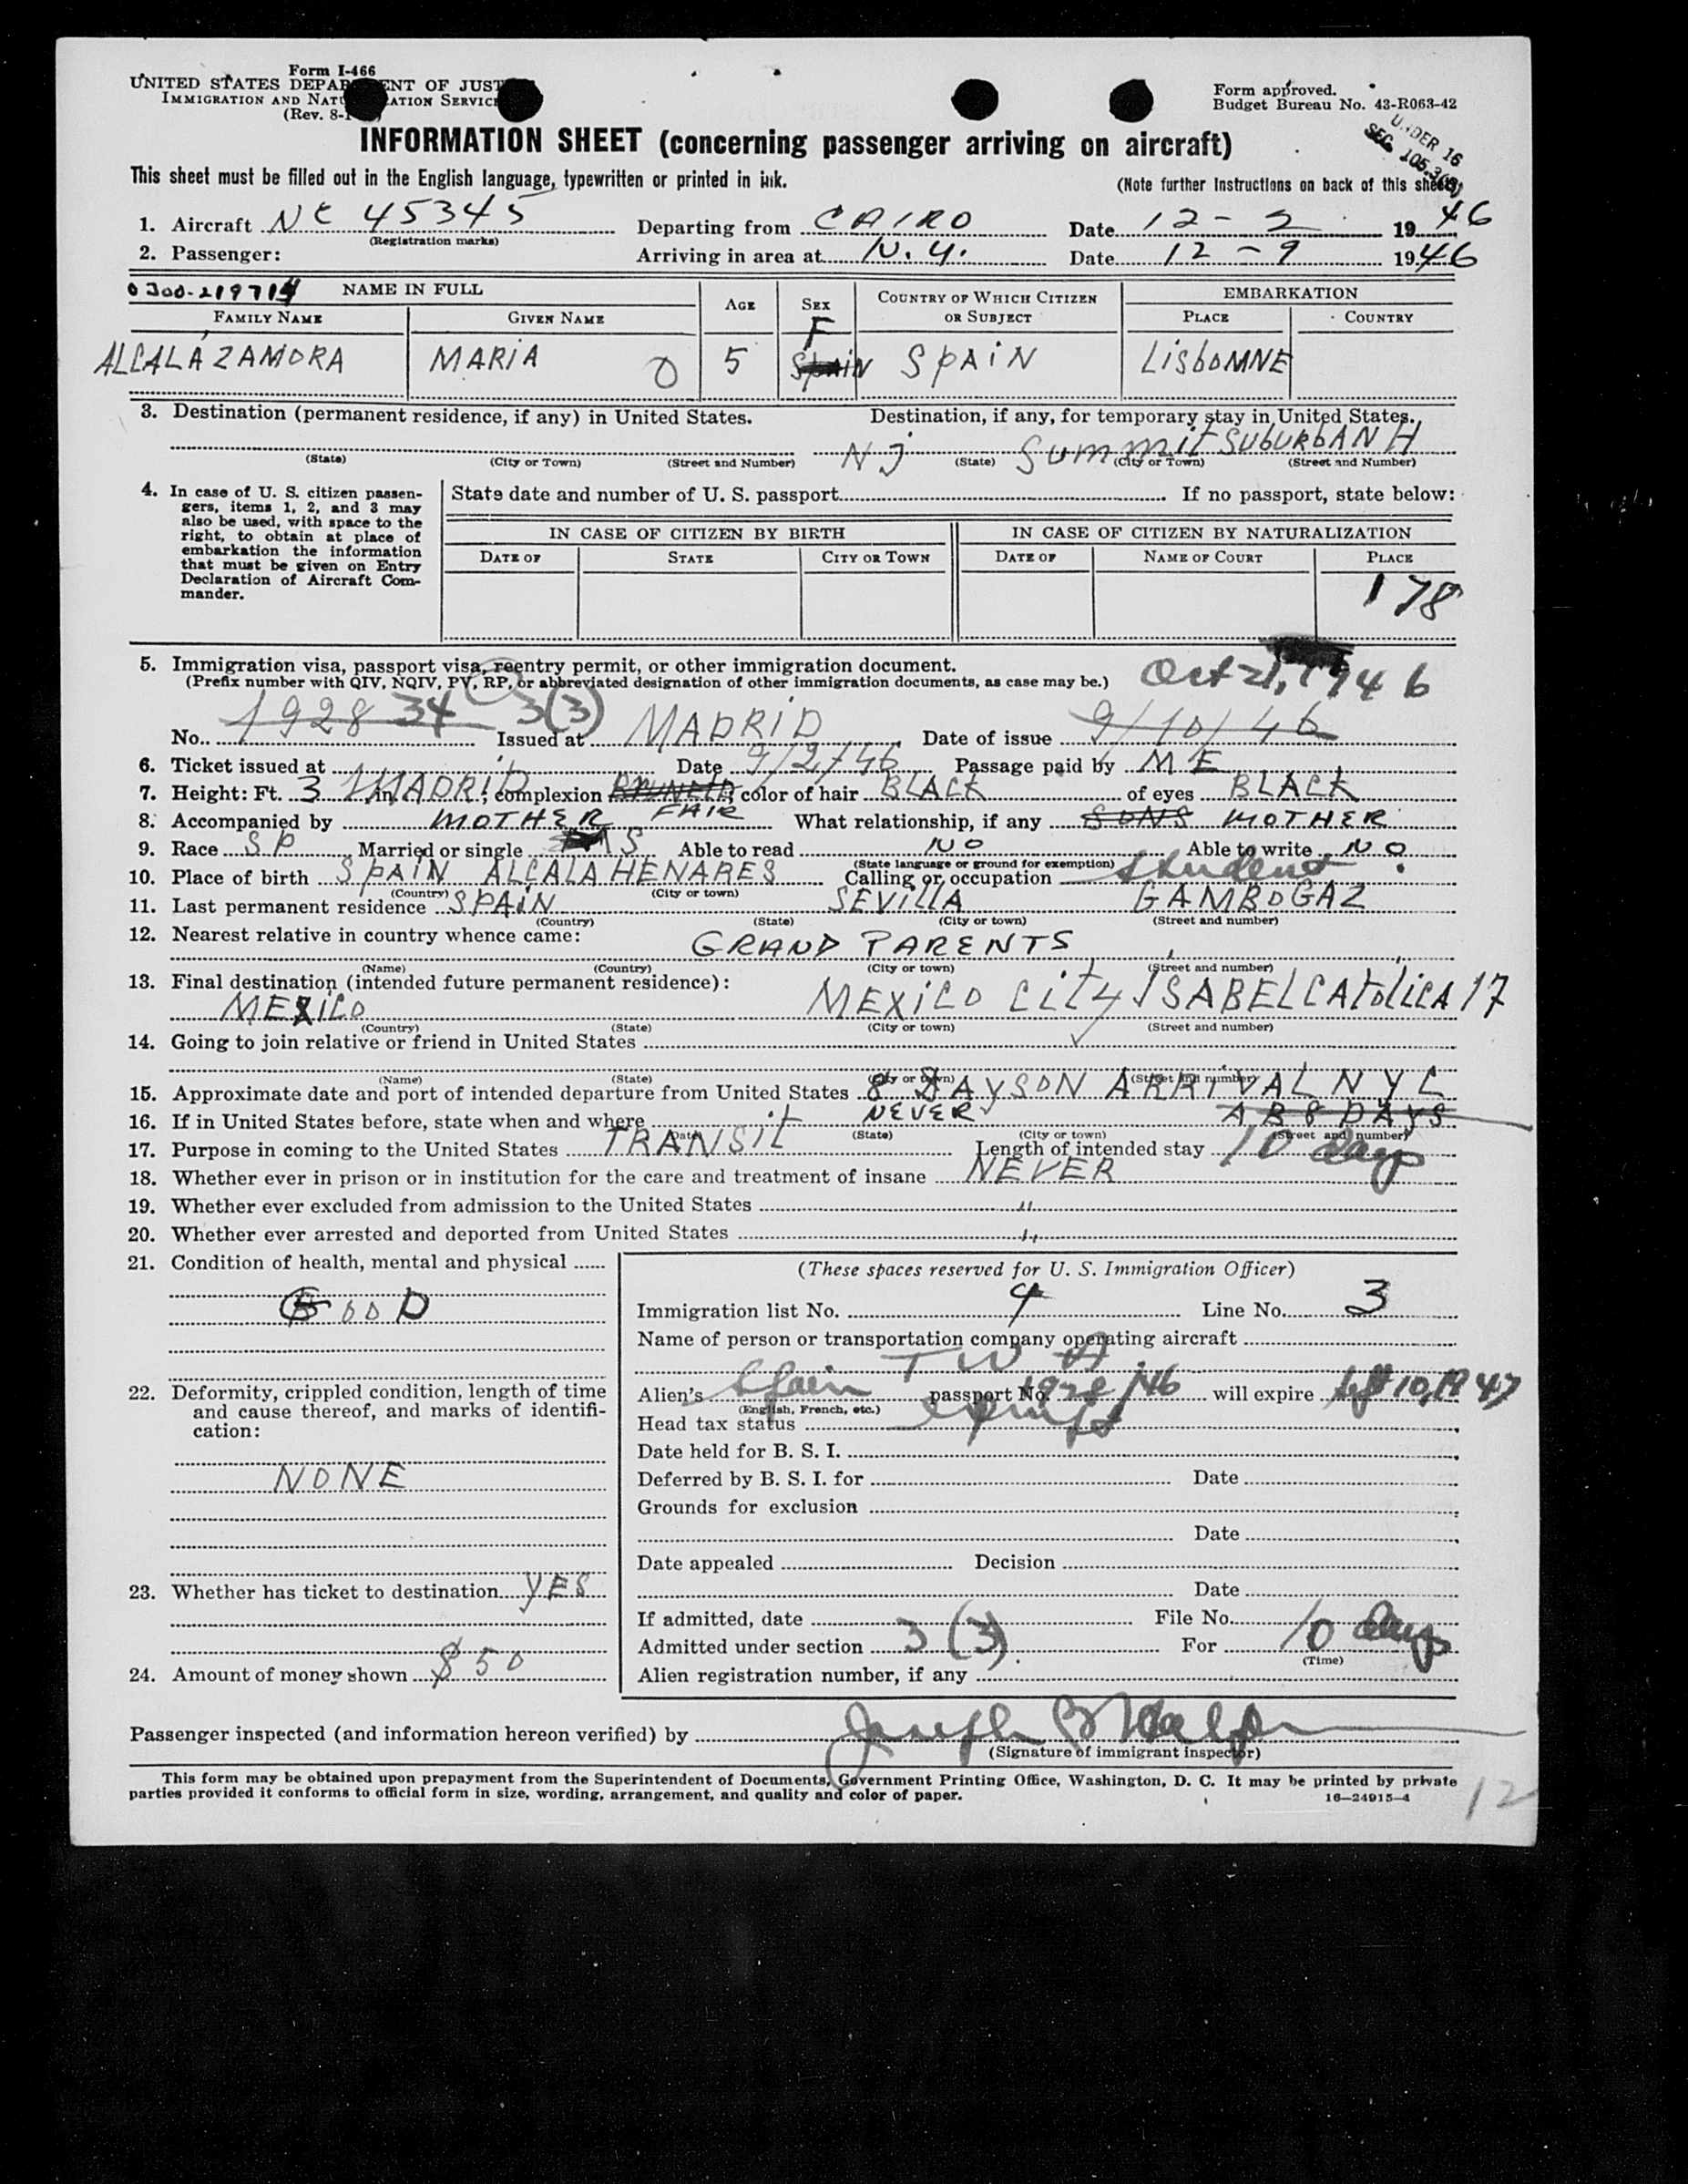 Form I-466
UNITED STATES DEPARTMENT OF JUSTICE
IMMIGRATION AND NATURALIZATION SERVICE
(Rev. 8-1
Form approved.
Budget Bureau No. 43-R063-42
UNDER 16
SEC. 105.3(B)
INFORMATION SHEET (concerning passenger arriving on aircraft)
This sheet must be filled out in the English language, typewritten or printed in ink.
(Note further instructions on back of this sheet)
1. Aircraft NC 45345 Departing from CAIRO Date 12-2 1946
(Registration marks)
2. Passenger: Arriving in area at N.Y. Date 12-9 1946
0300-219714 NAME IN FULL AGE SEX COUNTRY OF WHICH CITIZEN OR SUBJECT EMBARKATION
FAMILY NAME GIVEN NAME PLACE COUNTRY
F
ALCALÁ ZAMORA MARIA 0 5 Spain SPAIN LISBONNE
3. Destination (permanent residence, if any) in United States. Destination, if any, for temporary stay in United States.
NJ Summit SUBURBAN H
(State) (City or Town) (Street and Number) (State) (City or Town) (Street and Number)
4. In case of U. S. citizen passengers, items 1, 2, and 3 may also be used, with space to the right, to obtain at place of embarkation the information that must be given on Entry Declaration of Aircraft Commander.
State date and number of U. S. passport If no passport, state below:
IN CASE OF CITIZEN BY BIRTH IN CASE OF CITIZEN BY NATURALIZATION
DATE OF STATE CITY OR TOWN DATE OF NAME OF COURT PLACE
178
5. Immigration visa, passport visa, reentry permit, or other immigration document.
(Prefix number with QIV, NQIV, PV, RP, or abbreviated designation of other immigration documents, as case may be.)
Oct 21, 1946
No. 1928 34 3(3) Issued at MADRID Date of issue 9/10/46
6. Ticket issued at MADRID Date 9/2/46 Passage paid by ME
7. Height: Ft. 3 In. 1; complexion BRUNETE FAIR; color of hair BLACK of eyes BLACK
8. Accompanied by MOTHER What relationship, if any SONS MOTHER
9. Race SP Married or single S Able to read NO Able to write NO
(State language or ground for exemption)
10. Place of birth SPAIN ALCALA HENARES Calling or occupation Student
(Country) (City or town)
11. Last permanent residence SPAIN SEVILLA GAMBOGAZ
(Country) (State) (City or town) (Street and number)
12. Nearest relative in country whence came: GRAND PARENTS
(Name) (Country) (City or town) (Street and number)
13. Final destination (intended future permanent residence):
MEXICO MEXICO CITY ISABEL CATOLICA 17
(Country) (State) (City or town) (Street and number)
14. Going to join relative or friend in United States
(Name) (State) (City or town) (Street and number)
15. Approximate date and port of intended departure from United States 8 DAYS ON ARRIVAL NYC
16. If in United States before, state when and where NEVER AB 8 DAYS
(Date) (State) (City or town) (Street and number)
17. Purpose in coming to the United States TRANSIT Length of intended stay 10 days
18. Whether ever in prison or in institution for the care and treatment of insane NEVER
19. Whether ever excluded from admission to the United States "
20. Whether ever arrested and deported from United States "
21. Condition of health, mental and physical
GOOD
22. Deformity, crippled condition, length of time and cause thereof, and marks of identification:
NONE
23. Whether has ticket to destination YES
24. Amount of money shown $50
(These spaces reserved for U. S. Immigration Officer)
Immigration list No. 4 Line No. 3
Name of person or transportation company operating aircraft
TWA
Alien's Spain passport No. 1928/46 will expire Sept 10, 1947
(English, French, etc.)
Head tax status exempt
Date held for B. S. I.
Deferred by B. S. I. for Date
Grounds for exclusion
Date
Date appealed Decision
Date
If admitted, date File No.
Admitted under section 3(3). For 10 days
(Time)
Alien registration number, if any
Passenger inspected (and information hereon verified) by Joseph B
(Signature of immigrant inspector)
This form may be obtained upon prepayment from the Superintendent of Documents, Government Printing Office, Washington, D. C. It may be printed by private
parties provided it conforms to official form in size, wording, arrangement, and quality and color of paper. 16—24915-4
12